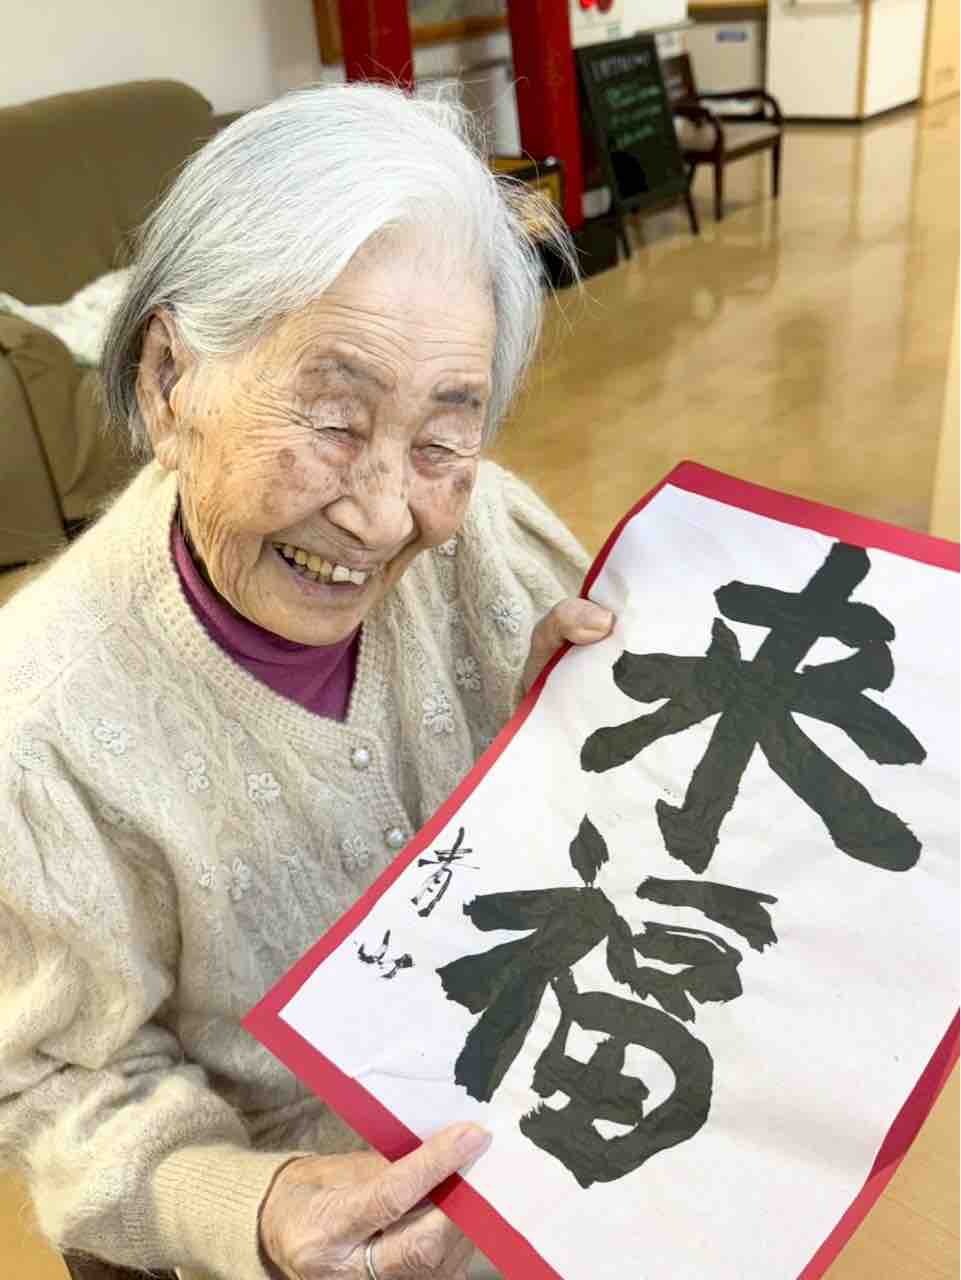 来福
青山